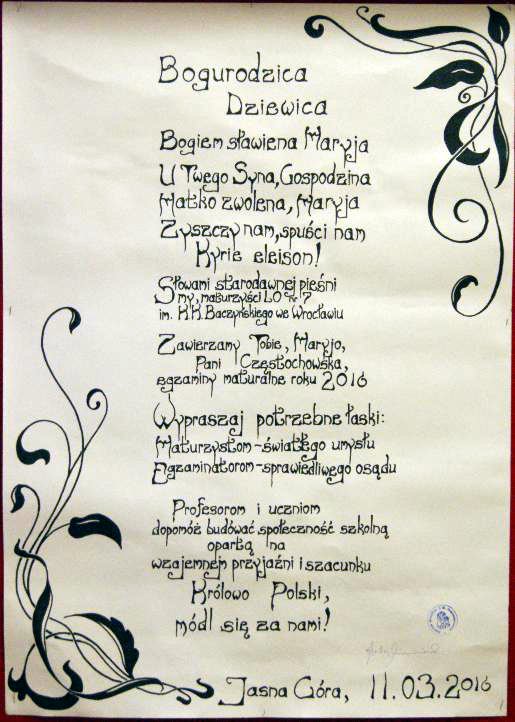 Bogurodzica
Dziewica
Bogiem sławiena Maryja
U Twego Syna, Gospodzina
Matko zwolena, Maryja
Zyszczy nam, spuści nam
Kyrie eleison!
Słowami starodawnej pieśni
my, maturzyści LO nr 7
im. K.K. Baczyńskiego we Wrocławiu
Zawierzamy Tobie, Maryjo,
Pani Częstochowska,
egzaminy maturalne roku 2016
Wypraszaj potrzebne łaski:
Maturzystom-światłego umysłu
Egzaminatorom-sprawiedliwego osądu
Profesorom i uczniom
dopomóż budować społeczność szkolną
opartą na
wzajemnem przyjaźni i szacunku
Królowo Polski,
módl się za nami!
Jasna Góra, 11.03.2016